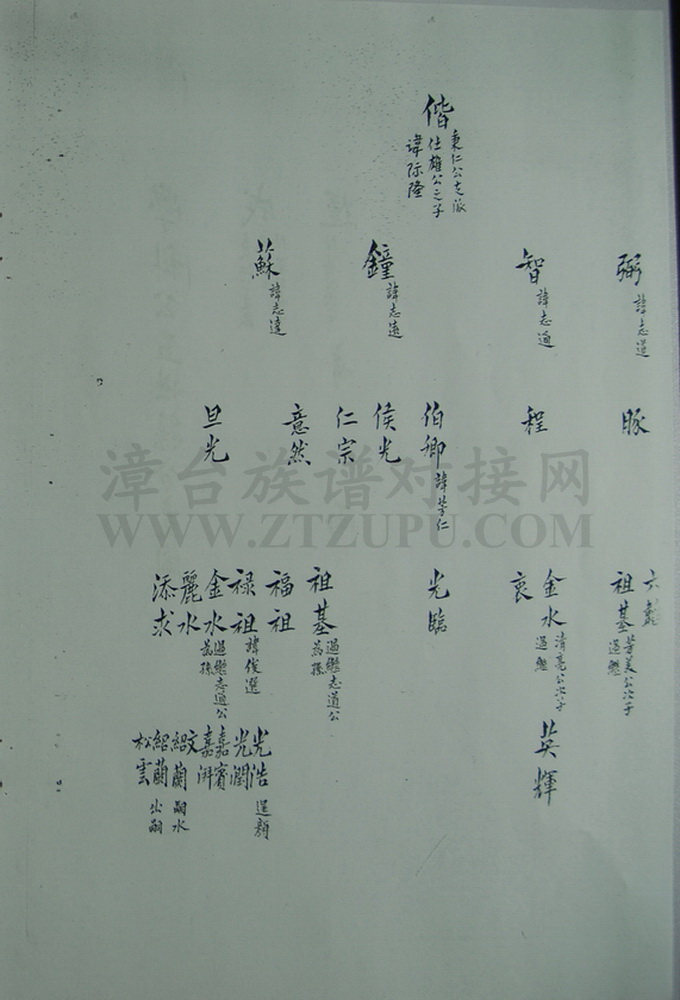 偕 秉仁公支派
仕雄公之子
諱际隆
弼 諱志道
智 諱志通
鐘 諱志遠
蘇 諱志達
豚
程
伯卿 諱芳仁
侯光
仁宗
意然
旦光
六
祖基 芳美公次子
過繼
金水 清亮公次子
過繼
衷
光臨
祖基 過繼志道公
為孫
福祖
禄祖 諱俊選
金水 過繼志通公
為孫
麗水
添求
英輝
光浩 選
光潤
嘉賓
嘉湃
文蘭 嗣水
紹蘭 出嗣
松雲
漳台族谱对接网
WWW.ZTZUPU.COM